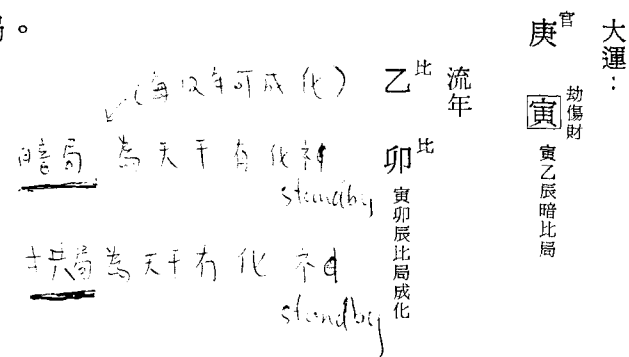 大運：
官
庚
劫傷財
寅
寅乙辰暗比局
流年
比
乙
比
卯
寅卯辰比局成化
(每12年可成化)
暗局 為天干有化神
standby
拱局為天干有化神
standby